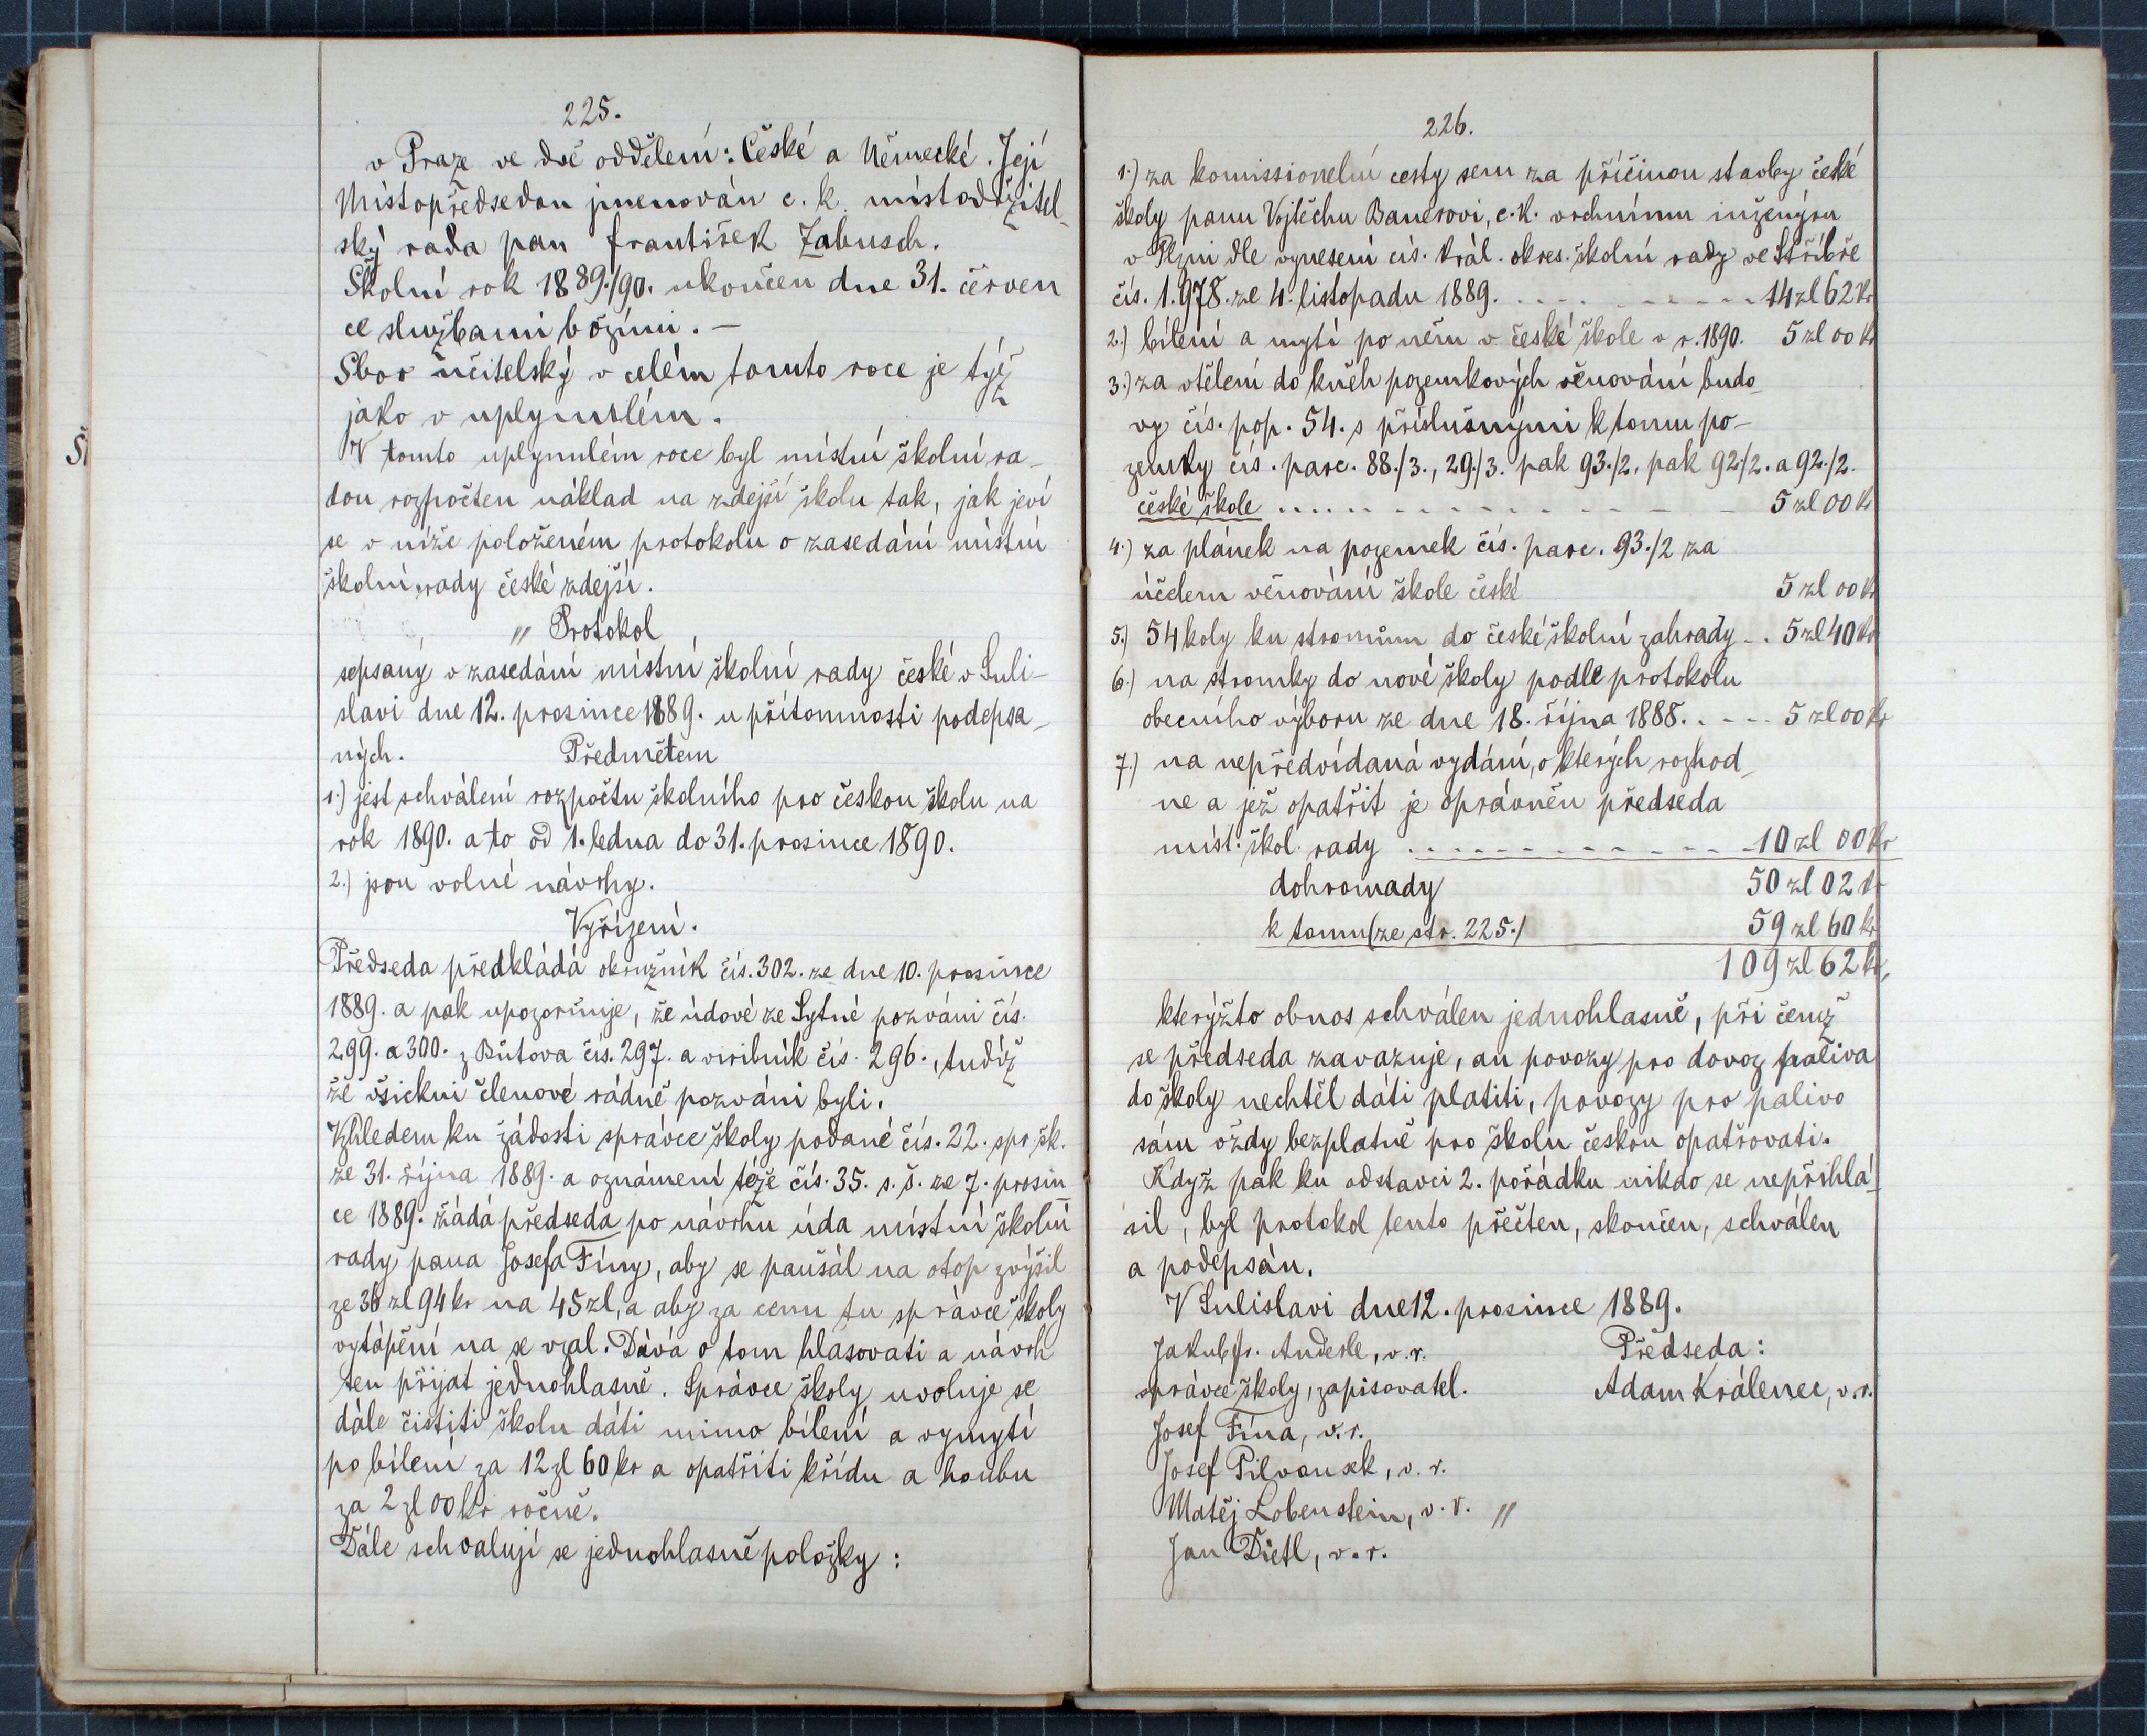 225.
v Praze ve dvě oddělení: České a Německé. Její
Místopředsedou jmenován c. k. místodržitel-
ský rada pan František Zabusch.
Školní rok 1889./90. ukončen dne 31. červen
ce službami božími. —
Sbor učitelský v celém tomto roce je týž
jako v uplynulém.
V tomto uplynulém roce byl místní školní ra-
dou rozpočten náklad na zdejší školu tak, jak jeví
se v níže položeném protokolu o zasedání místní
školní rady české zdejší.
„ Protokol
sepsaný v zasedání místní školní rady české v Suli-
slavi dne 12. prosince 1889. u přítomnosti podepsa-
ných. Předmětem
1.) jest schválení rozpočtu školního pro českou školu na
rok 1890. a to od 1. ledna do 31. prosince 1890.
2.) jsou volné návrhy.
Vyřízení.
Předseda předkládá okružník čís. 302. ze dne 10. prosince
1889. a pak upozorňuje, že údové ze Sytné pozváni čís.
299. a 300. z Bůtova čís. 297. a virilník čís. 296., tudíž
že všickni členové řádně pozváni byli.
Vzhledem ku žádosti správce školy podané čís. 22. spr. šk.
ze 31. října 1889. a oznámení téže čís. 35. s. š. ze 7. prosin-
ce 1889. žádá předseda po návrhu úda místní školní
rady pana Josefa Fíny, aby se paušál na otop zvýšil
ze 36 zl 94 kr na 45 zl, a aby za cenu tu správce školy
vytápění na se vzal. Dává o tom hlasovati a návrh
ten přijat jednohlasně. Správce školy uvoluje se
dále čistiti školu dáti mimo bílení a vymytí
po bílení za 12 zl 60 kr a opatřiti křídu a houbu
za 2 zl 00 kr ročně.
Dále schvalují se jednohlasně položky:
226.
1.) za komissionelní cesty sem za příčinou stavby české
školy panu Vojtěchu Bauerovi, c. k. vrchnímu inženýru
v Plzni dle vynesení cís. král. okres. školní rady ve Stříbře
čís. 1.978. ze 4. listopadu 1889. . . . . . . . . . 14 zl 62 kr
2.) bílení a mytí po něm v české škole v r. 1890. 5 zl 00 kr
3.) za vtělení do kněh pozemkových věnování budo-
vy čís. pop. 54. s příslušnými k tomu po-
zemky čís. parc. 88./3., 29./3. pak 93./2, pak 92./2. a 92./2.
české škole . . . . . . . . . . . . . . . 5 zl 00 kr
4.) za plánek na pozemek čís. parc. 93./2 za
účelem věnování škole české 5 zl 00 kr
5.) 54 koly ku stromům do české školní zahrady - . 5 zl 40 kr
6.) na stromky do nové školy podle protokolu
obecního výboru ze dne 18. října 1888. . - - - 5 zl 00 kr
7.) na nepředvídaná vydání, o kterých rozhod-
ne a jež opatřit je oprávněn předseda
míst. škol. rady . . . . . . . . . . . . . 10 zl 00 kr
dohromady 50 zl 02 kr
k tomu (ze str. 225.) 59 zl 60 kr
109 zl 62 kr,
kterýžto obnos schválen jednohlasně, při čemž
se předseda zavazuje, an povozy pro dovoz paliva
do školy nechtěl dáti platiti, povozy pro palivo
sám vždy bezplatně pro školu českou opatřovati.
Když pak ku odstavci 2. pořádku nikdo se nepřihlá-
sil, byl protokol tento přečten, skončen, schválen
a podepsán.
V Sulislavi dne 12. prosince 1889.
Jakub Anderle, v. r. Předseda:
správce školy, zapisovatel. Adam Králenec, v. r.
Josef Fína, v. r.
Josef Pilvousek, v. r.
Matěj Lobenstein, v. r. „
Jan Dietl, v. r.